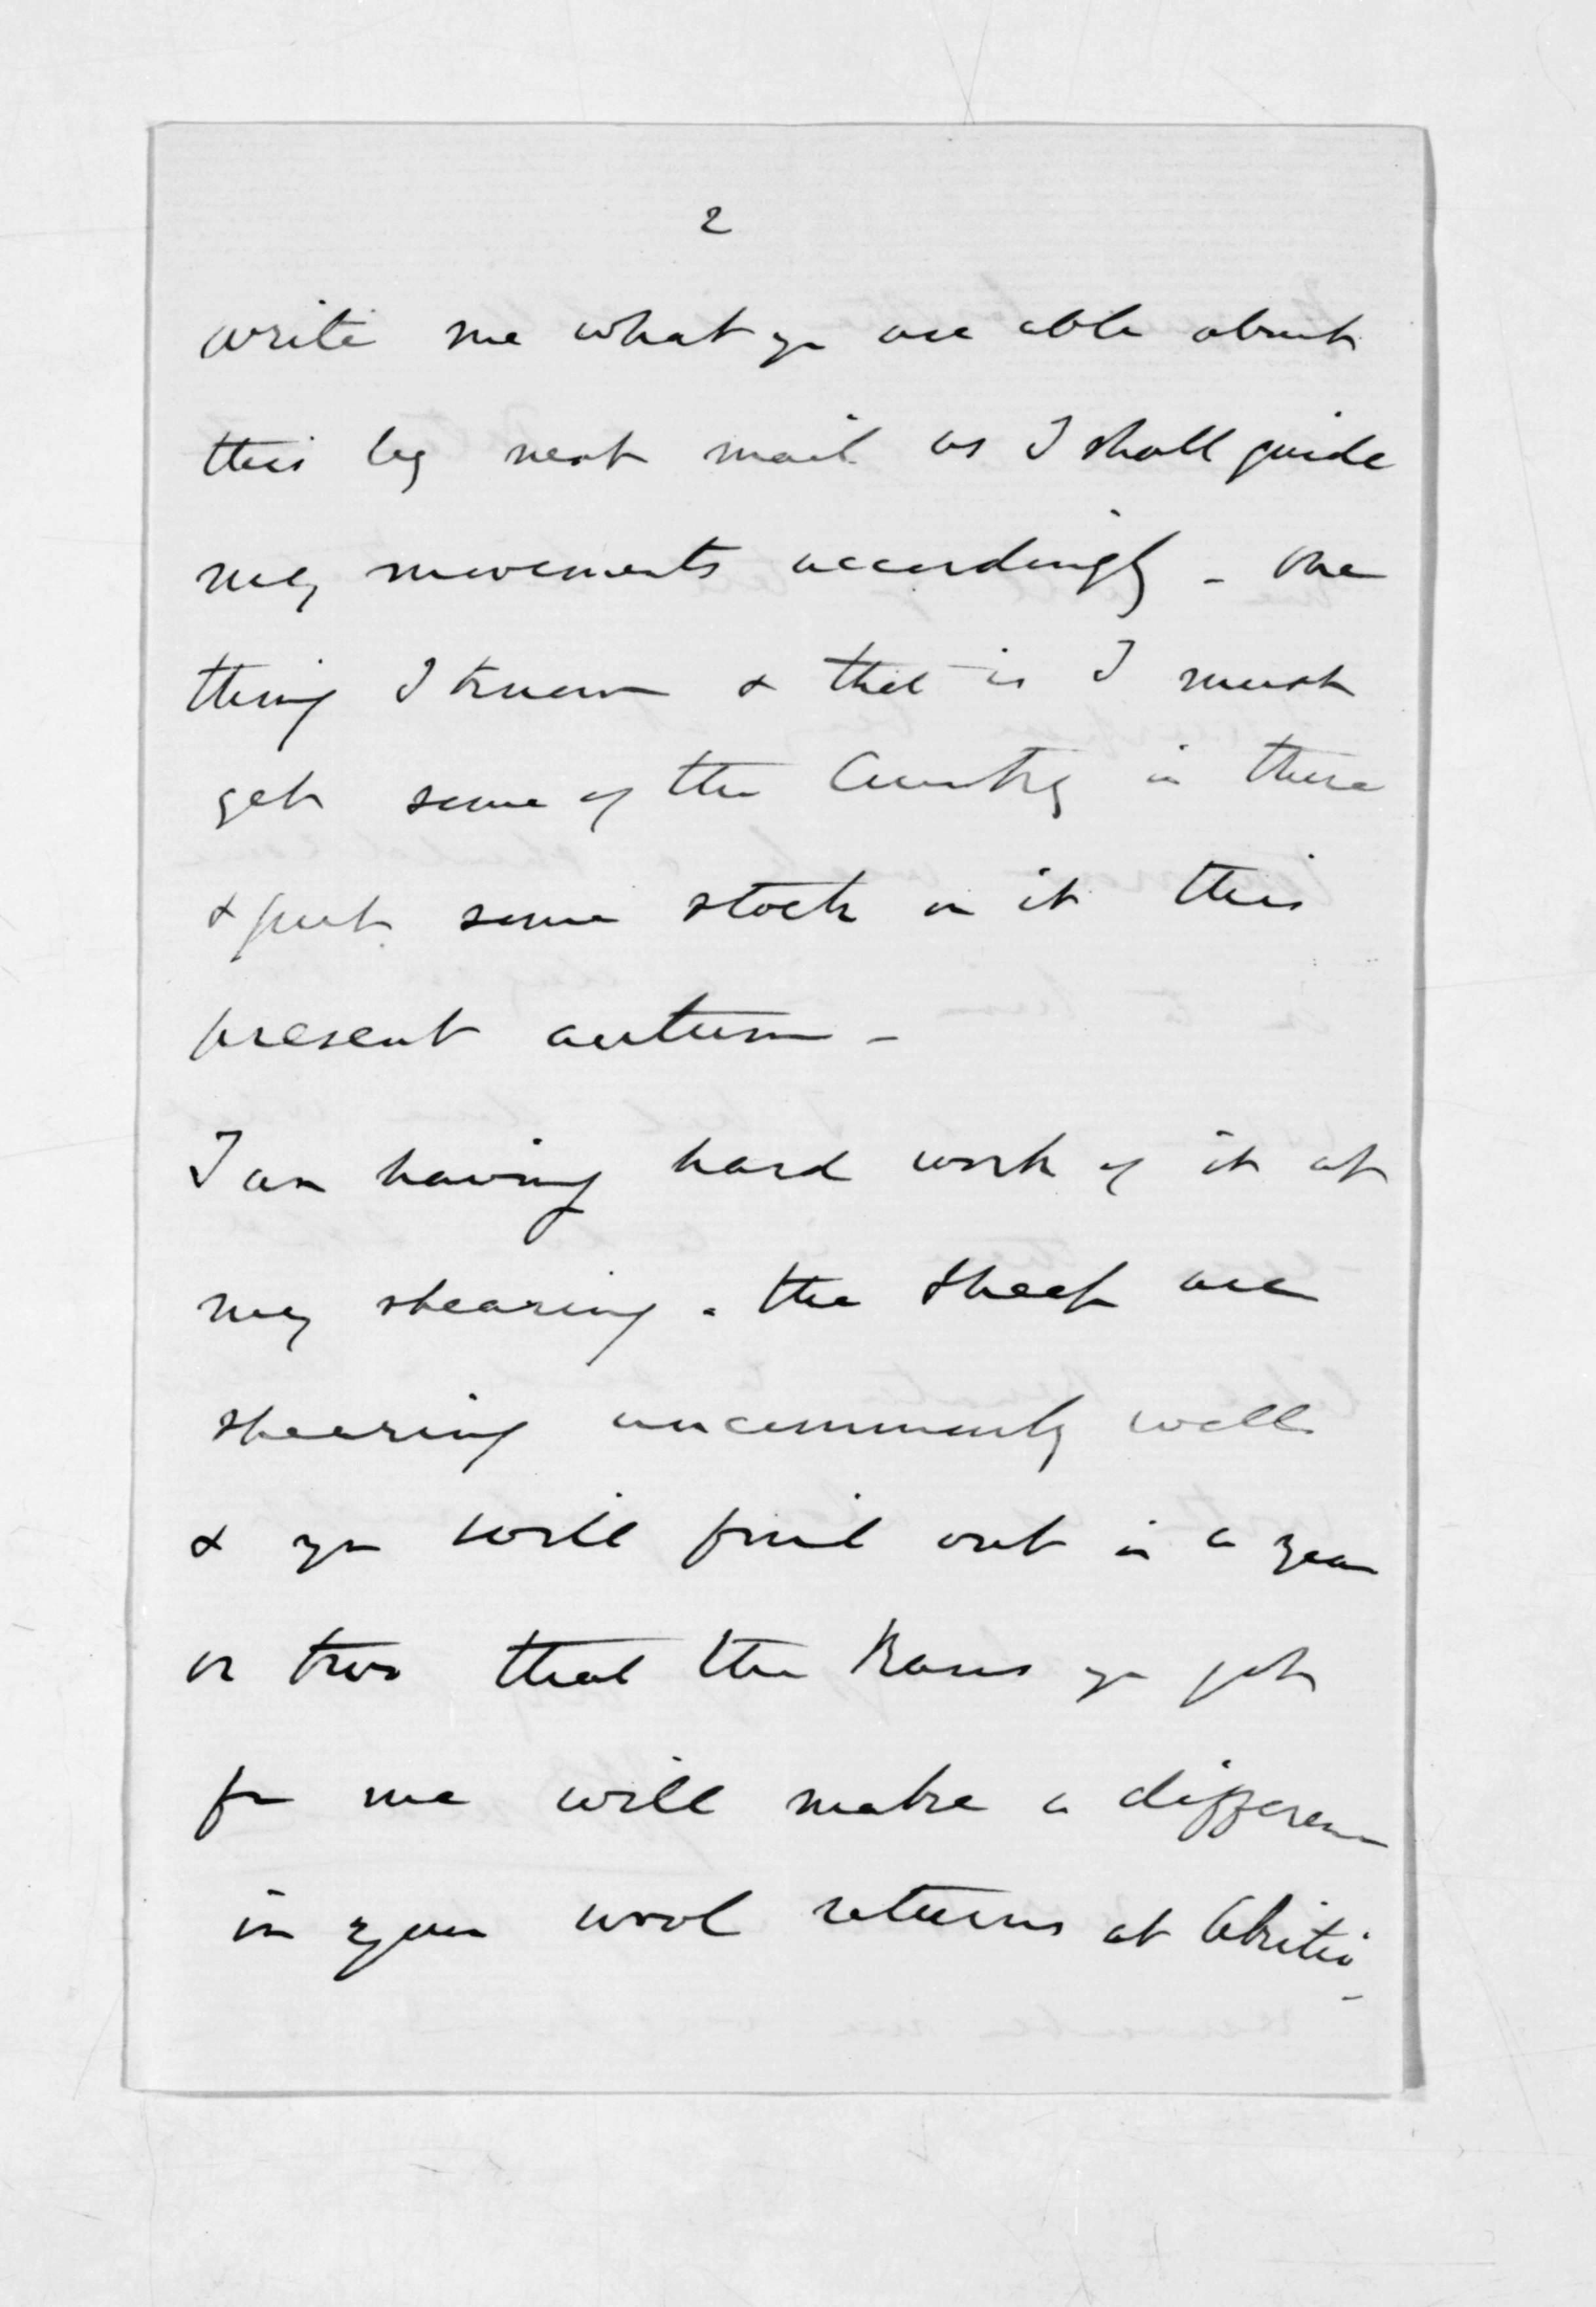 2
write me what you are able about
this by next mail as I shall guide
my movements accordingly - One
thing I know & that is I must
get some of the Country in there
& put some stock on it this
present autumn -
I am having hard work of it at
my shearing. the sheep are
shearing uncommonly well
& you will find out in a year
or two that the Rams you got
for me will make a difference
in your wool returns at Akitio -